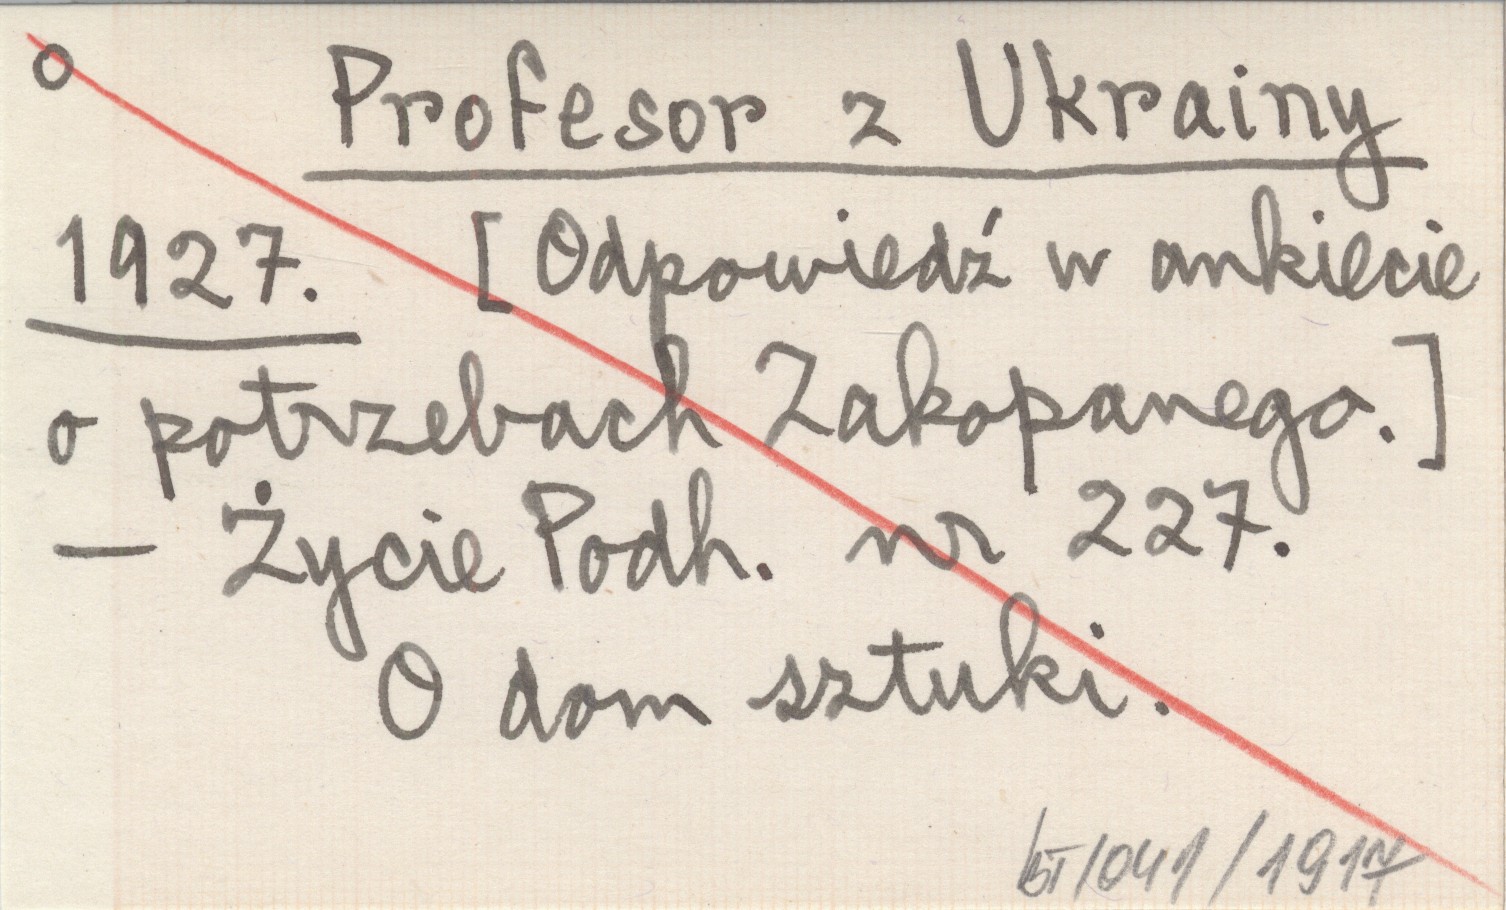 o Profesor z Ukrainy
1927. [Odpowiedź w ankiecie
o potrzebach Zakopanego.]
— Życie Podh. nr 227.
O dom sztuki.
/041/1917